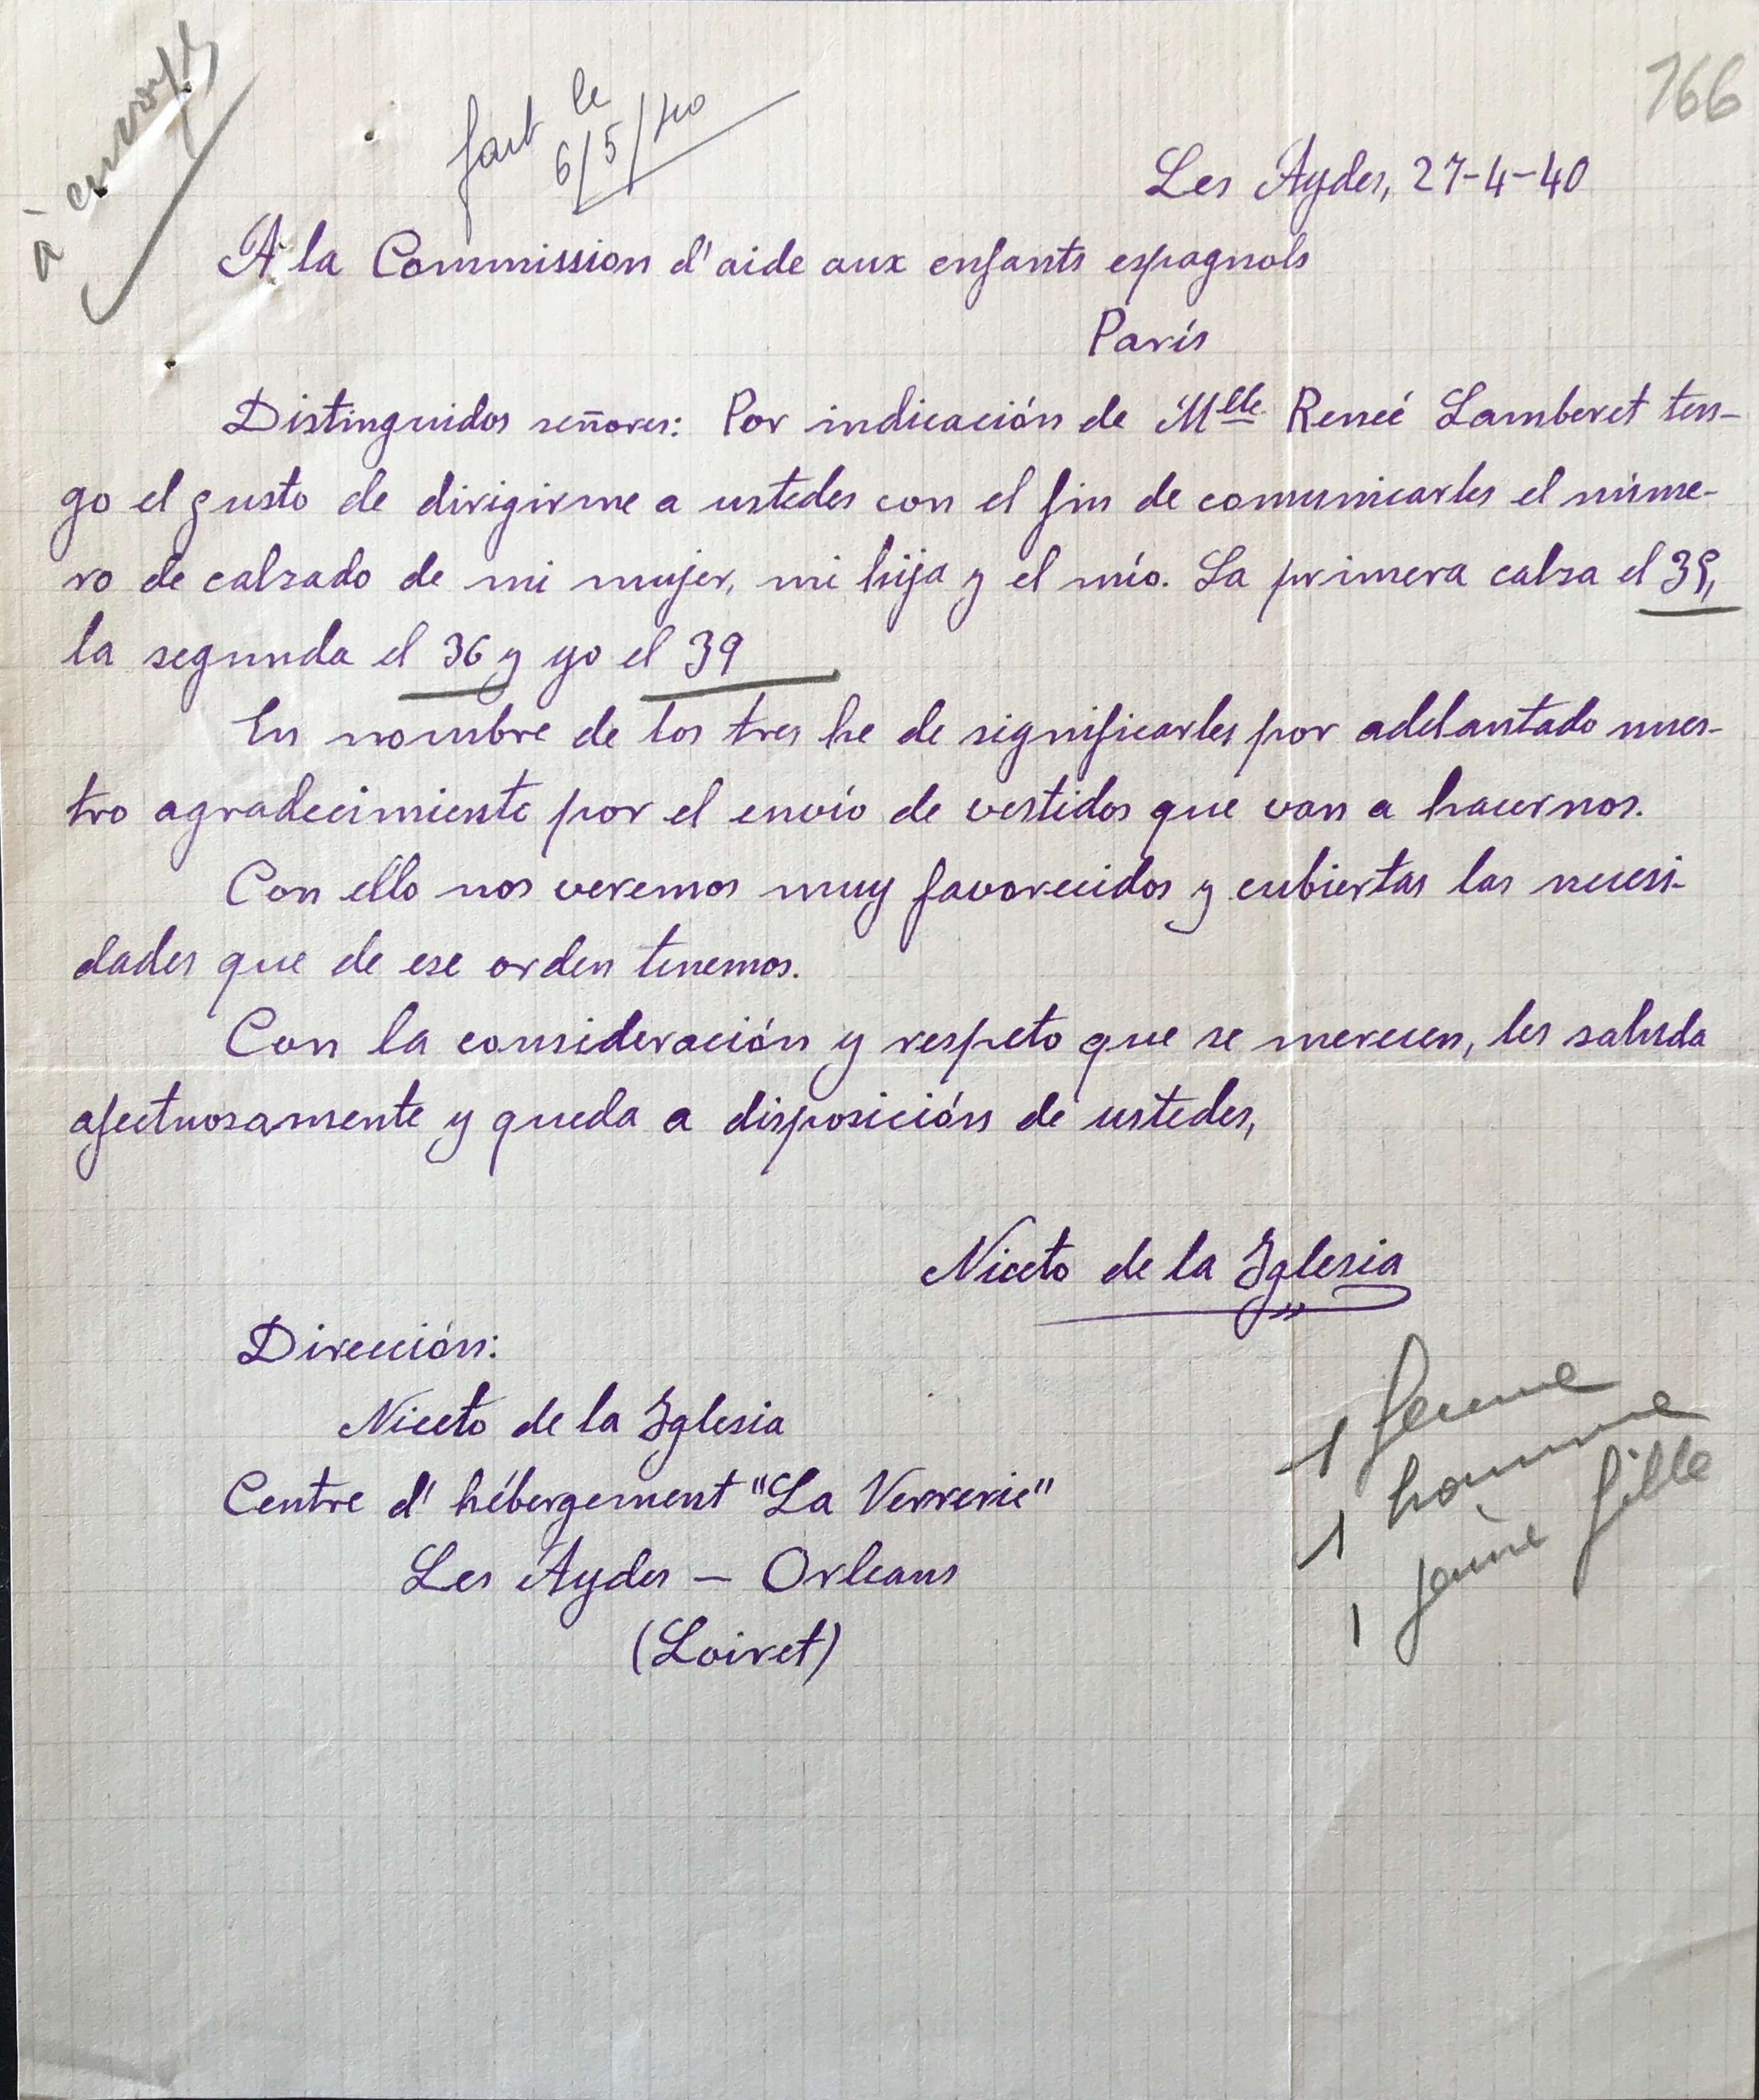 à envoyer
fait le
6/5/40
766
Les Aydes, 27-4-40
A la Commission d'aide aux enfants espagnols
París
Distinguidos señores: Por indicación de Mlle. Reneé Lamberet ten-
go el gusto de dirigirme a ustedes con el fin de comunicarles el núme-
ro de calzado de mi mujer, mi hija y el mío. La primera calza el
la segunda el 36 y yo el 39
En nombre de los tres he de significarles por adelantado nues-
tro agradecimiento por el envío de vestidos que van a hacernos.
Con ello nos veremos muy favorecidos y cubiertas las necesi-
dades que de ese orden tenemos.
Con la consideración y respeto que se merecen, les saluda
afectuosamente y queda a disposición de ustedes,
Niceto de la Iglesia
Dirección:
Niceto de la Iglesia
Centre d' hébergement "La Verrerie"
Les Aydes - Orleans
(Loiret)
1 femme
1 homme
1 jeune fille